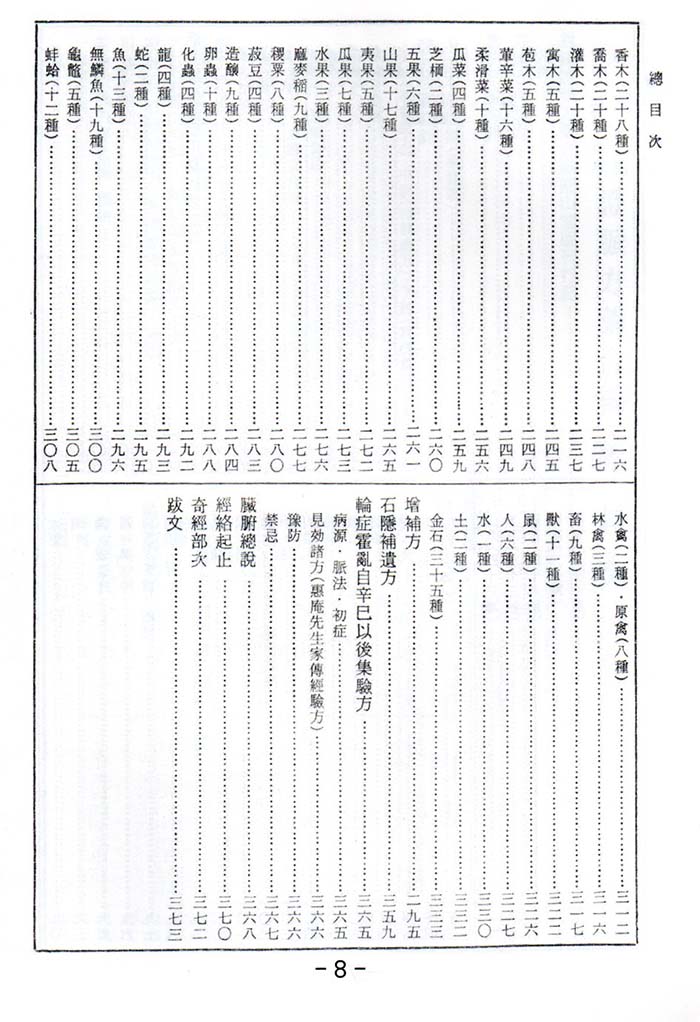 總目次
香木(二十八種)……二一六
喬木(二十種)……二二七
灌木(二十種)……二三七
寓木(五種)……二四五
苞木(五種)……二四八
葷辛菜(十六種)……二四九
柔滑菜(十種)……二五六
瓜菜(四種)……二五九
芝栭(二種)……二六〇
五果(六種)……二六一
山果(十七種)……二六五
夷果(五種)……二七二
瓜果(七種)……二七三
水果(三種)……二七六
麻麥稻(九種)……二七七
稷粟(八種)……二八〇
菽豆(四種)……二八三
造釀(九種)……二八四
卵蟲(十種)……二八八
化蟲(四種)……二九二
龍(四種)……二九三
蛇(二種)……二九五
魚(十三種)……二九六
無鱗魚(十九種)……三〇〇
龜鼈(五種)……三〇五
蚌蛤(十二種)……三〇八
水禽(二種)・原禽(八種)……三一二
林禽(三種)……三一六
畜(九種)……三一七
獸(十一種)……三二二
鼠(二種)……三二六
人(六種)……三二七
水(一種)……三三〇
土(二種)……三三二
金石(三十五種)……三三三
增補方……二九五
石隱補遺方……三五九
輪症霍亂自辛巳以後集驗方……三六五
病源・脈法・初症……三六五
見効諸方(惠庵先生家傳經驗方)……三六六
豫防……三六六
禁忌……三六七
臟腑總說……三六八
經絡起止……三七〇
奇經部次……三七二
跋文……三七三
-8-